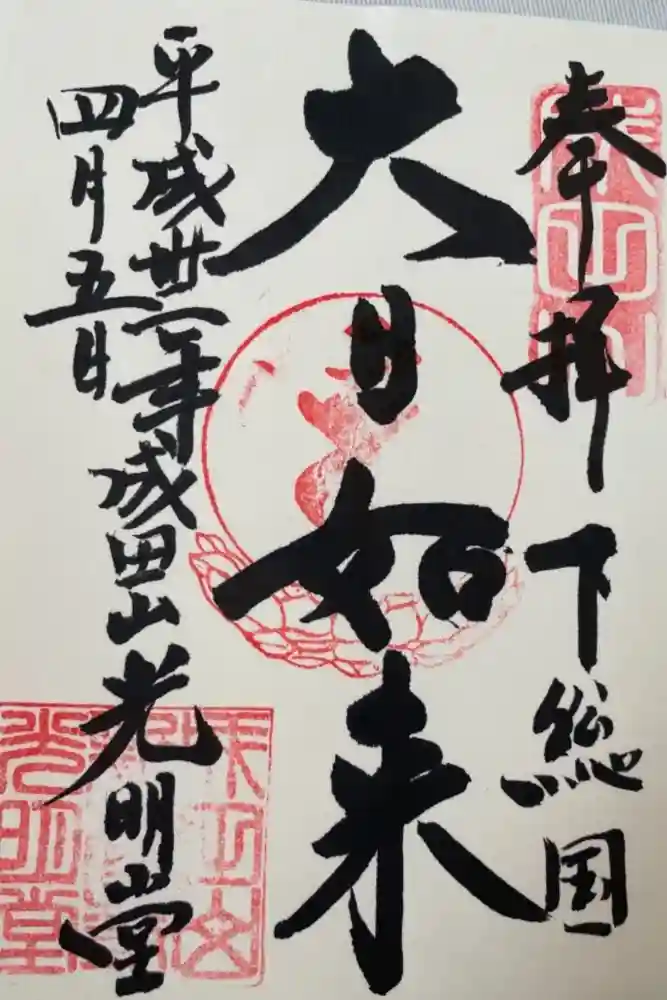 奉拝 下総国
大日如来
平成卅一年 成田山光明堂
四月五日